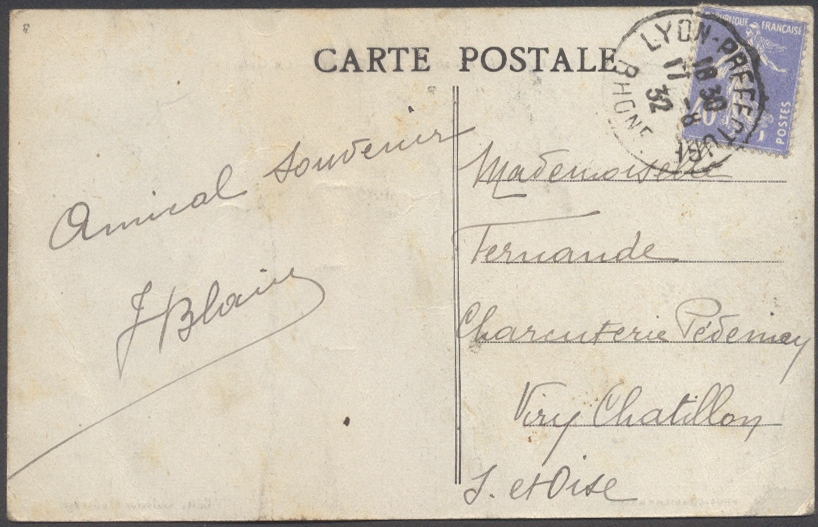 CARTE POSTALE
RÉPUBLIQUE FRANÇAISE
40
POSTES
LYON-PREFECTURE
18 30
11 -8
32
RHONE
Amical Souvenir
J Blain
Mademoiselle
Fernande
Charcuterie
Viry Chatillon
S. et Oise